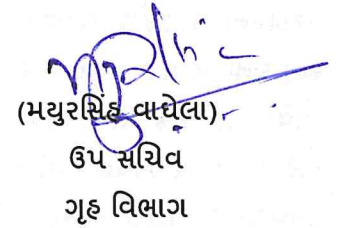 (મયુરસિંહ વાઘેલા)
ઉપ સચિવ
ગૃહ વિભાગ